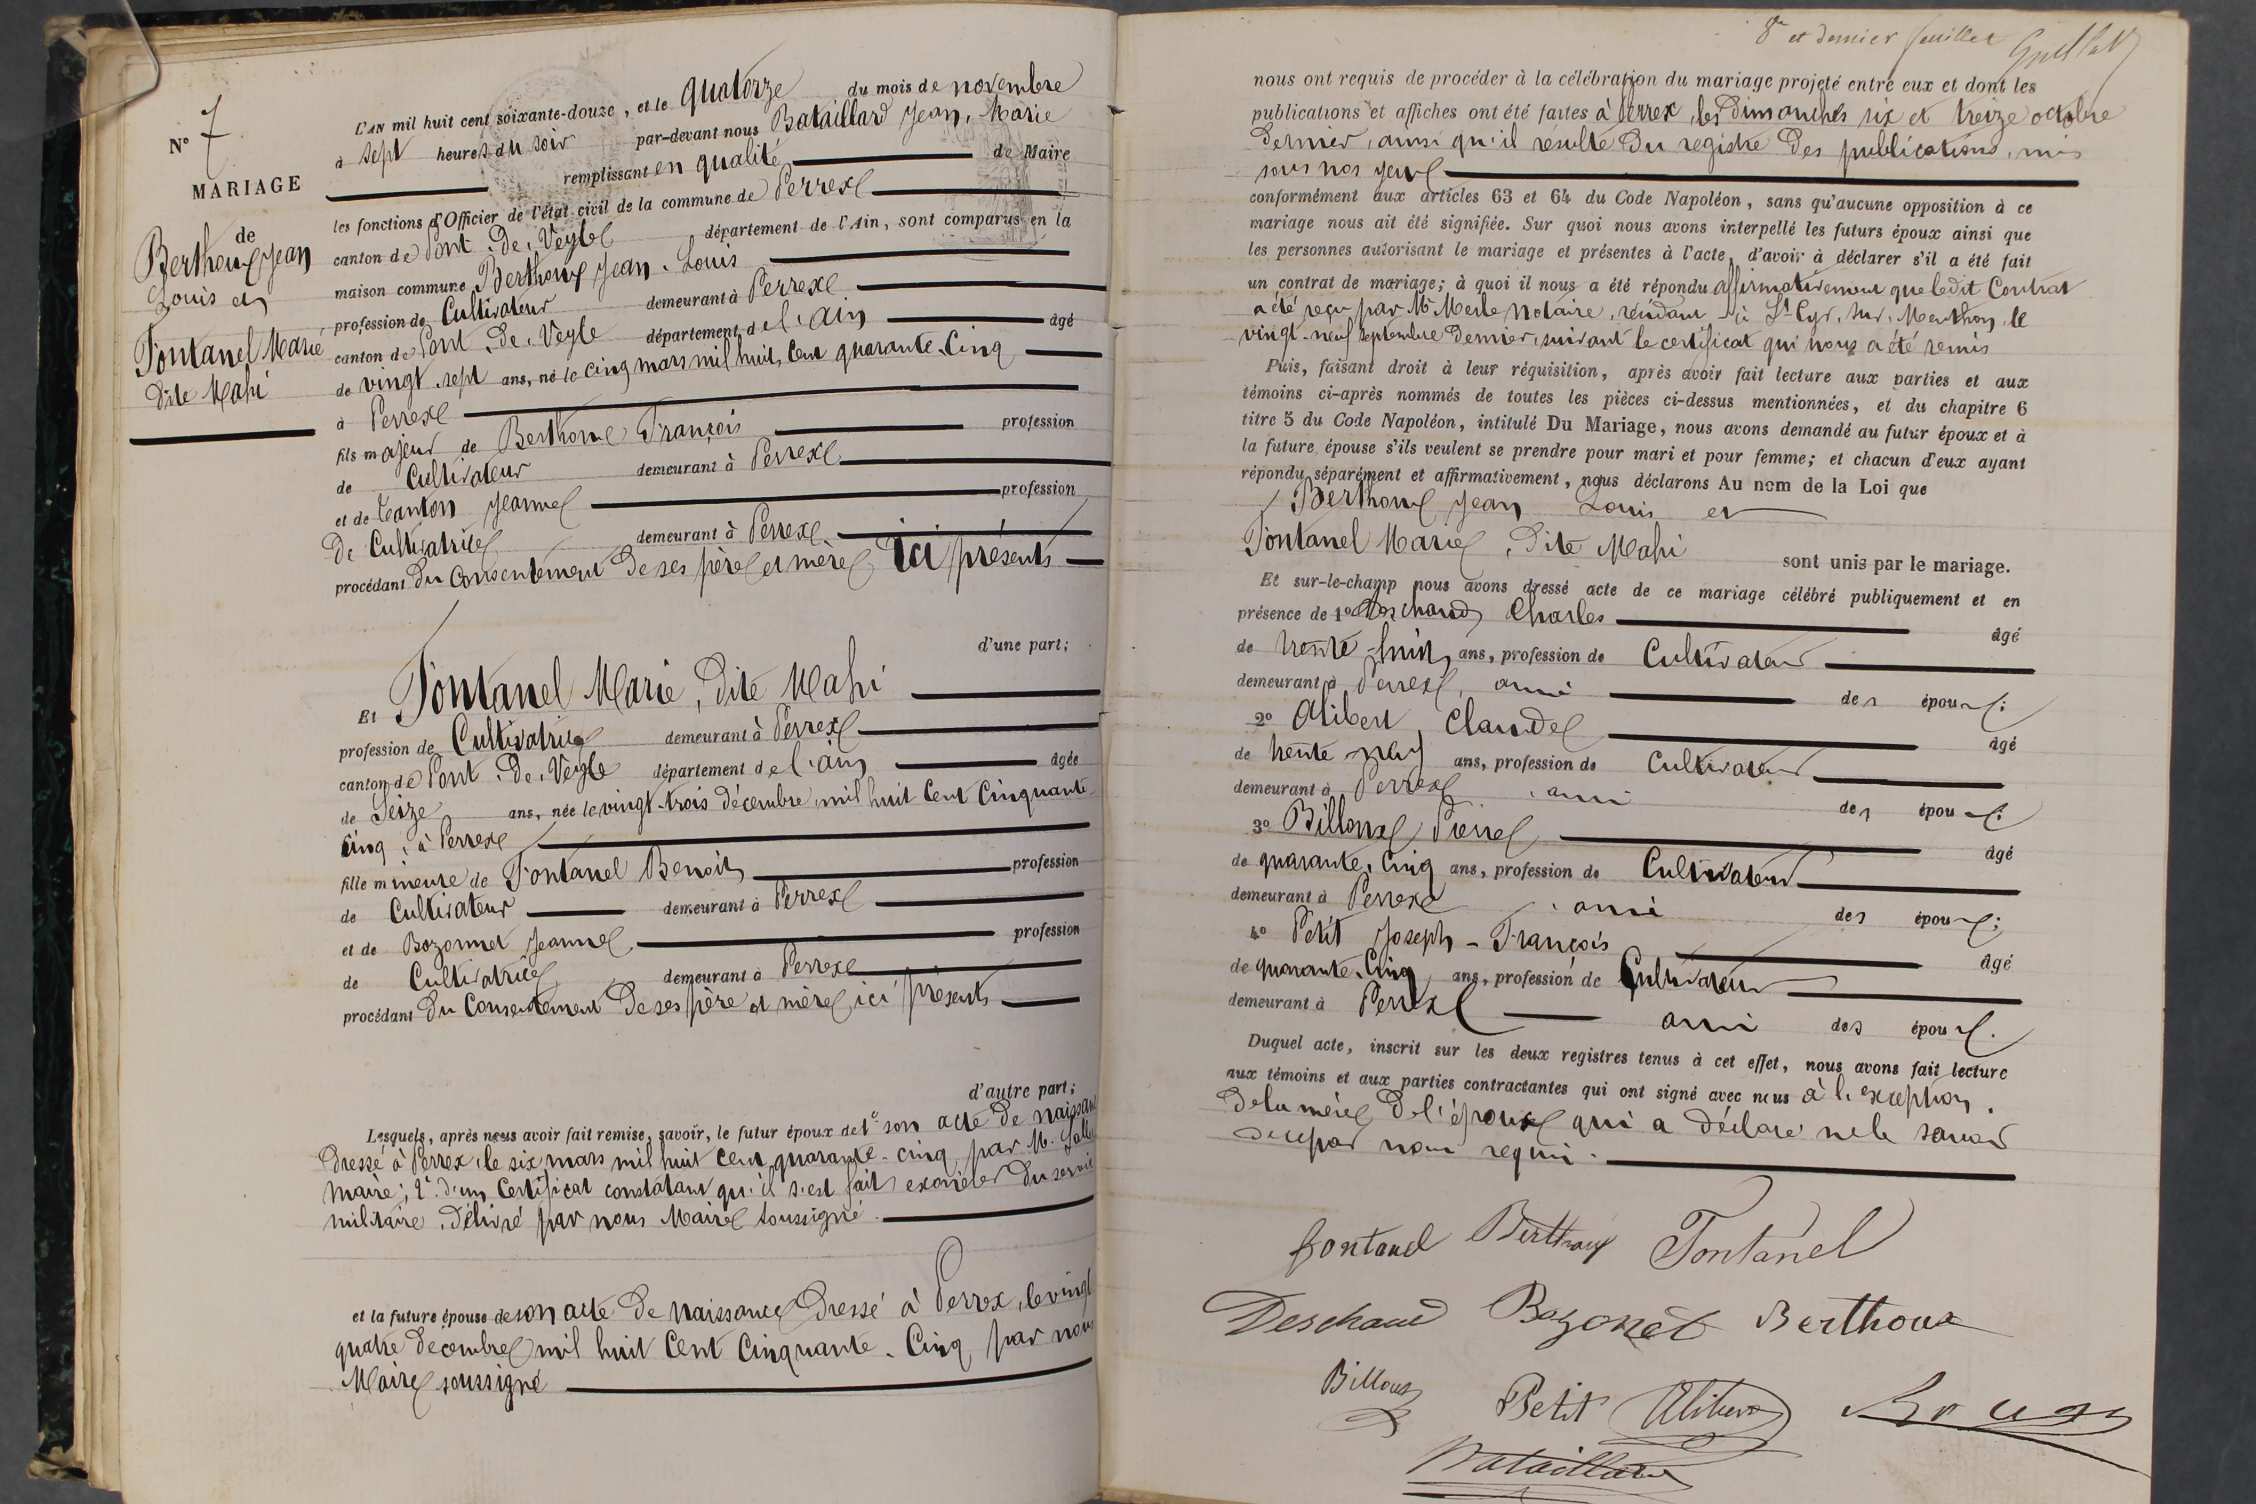 N° 7
MARIAGE
de
Berthoux Jean
Louis et
Fontanel Marie
dite Mahi
L'AN mil huit cent soixante-douze, et le quatorze du mois de novembre
à sept heures du soir par-devant nous Bataillard Jean, Marie
remplissant en qualité de Maire
les fonctions d'Officier de l'état civil de la commune de Perrex
canton de Pont-de-Veyle département de l'Ain, sont comparus en la
maison commune Berthoux Jean-Louis
profession de Cultivateur demeurant à Perrex
canton de Pont-de-Veyle département de l'ain âgé
de vingt-sept ans, né le cinq mars mil huit cent quarante-cinq
à Perrex
fils majeur de Berthoux François profession
de Cultivateur demeurant à Perrex
et de Tanton Jeanne profession
De Cultivatrice demeurant à Perrex
procédant du consentement de ses père et mère ici présents
d'une part;
Et Fontanel Marie, dite Mahi
profession de Cultivatrice demeurant à Perrex
canton de Pont-de-Veyle département de l'ain âgée
de Seize ans, née le vingt-trois décembre mil huit cent cinquante-
cinq, à Perrex
fille mineure de Fontanel Benoit profession
de Cultivateur demeurant à Perrex
et de Bozonnet Jeanne profession
de Cultivatrice demeurant à Perrex
procédant du consentement de ses père et mère ici présents
d'autre part;
Lesquels, après nous avoir fait remise, savoir, le futur époux de 1° son acte de naissance
dressé à Perrex, le six mars mil huit cent quarante-cinq par M.
maire; 2° d'un certificat constatant qu'il s'est fait exonérer du service
militaire, délivré par nous Maire soussigné
et la future épouse de son acte de naissance dressé à Perrex, le vingt
quatre décembre mil huit cent cinquante-cinq par nous
Maire soussigné
8e et dernier feuillet
nous ont requis de procéder à la célébration du mariage projeté entre eux et dont les
publications et affiches ont été faites à Perrex, les dimanches six et treize octobre
dernier, ainsi qu'il résulte du registre des publications, mis
sous nos yeux
conformément aux articles 63 et 64 du Code Napoléon, sans qu'aucune opposition à ce
mariage nous ait été signifiée. Sur quoi nous avons interpellé les futurs époux ainsi que
les personnes autorisant le mariage et présentes à l'acte, d'avoir à déclarer s'il a été fait
un contrat de mariage; à quoi il nous a été répondu affirmativement que ledit Contrat
a été reçu par Me Merle notaire, résidant à St Cyr-sur-Menthon, le
vingt-neuf septembre dernier, suivant le certificat qui nous a été remis
Puis, faisant droit à leur réquisition, après avoir fait lecture aux parties et aux
témoins ci-après nommés de toutes les pièces ci-dessus mentionnées, et du chapitre 6
titre 5 du Code Napoléon, intitulé Du Mariage, nous avons demandé au futur époux et à
la future épouse s'ils veulent se prendre pour mari et pour femme; et chacun d'eux ayant
répondu séparément et affirmativement, nous déclarons Au nom de la Loi que
Berthoux Jean Louis et
Fontanel Marie, dite Mahi sont unis par le mariage.
Et sur-le-champ nous avons dressé acte de ce mariage célébré publiquement et en
présence de 1° Deschaud Charles âgé
de trente-huit ans, profession de Cultivateur
demeurant à Perrex, ami des époux;
2° Alibert Claude âgé
de trente-neuf ans, profession de Cultivateur
demeurant à Perrex, ami des époux;
3° Billoux Pierre âgé
de quarante-cinq ans, profession de Cultivateur
demeurant à Perrex, ami des époux;
4° Petit Joseph-François âgé
de quarante-cinq ans, profession de Cultivateur
demeurant à Perrex ami des époux.
Duquel acte, inscrit sur les deux registres tenus à cet effet, nous avons fait lecture
aux témoins et aux parties contractantes qui ont signé avec nous à l'exception
de la mère de l'époux qui a déclaré ne le savoir
de ce par nous requis.
fontanel Berthoux Fontanel
Deschaud Bozonet Berthoux
Billoux Petit Alibert
Bataillard